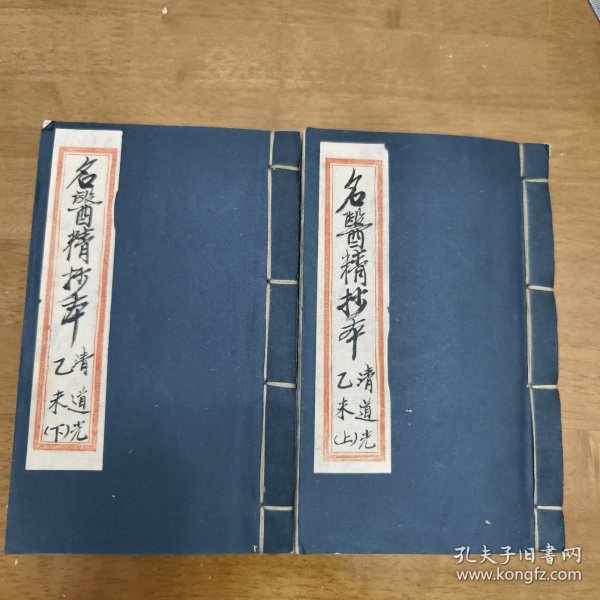 名醫精抄本
清道光
乙未
(下)
名醫精抄本
清道光
乙未
(上)
孔夫子旧书网
www.kongfz.com